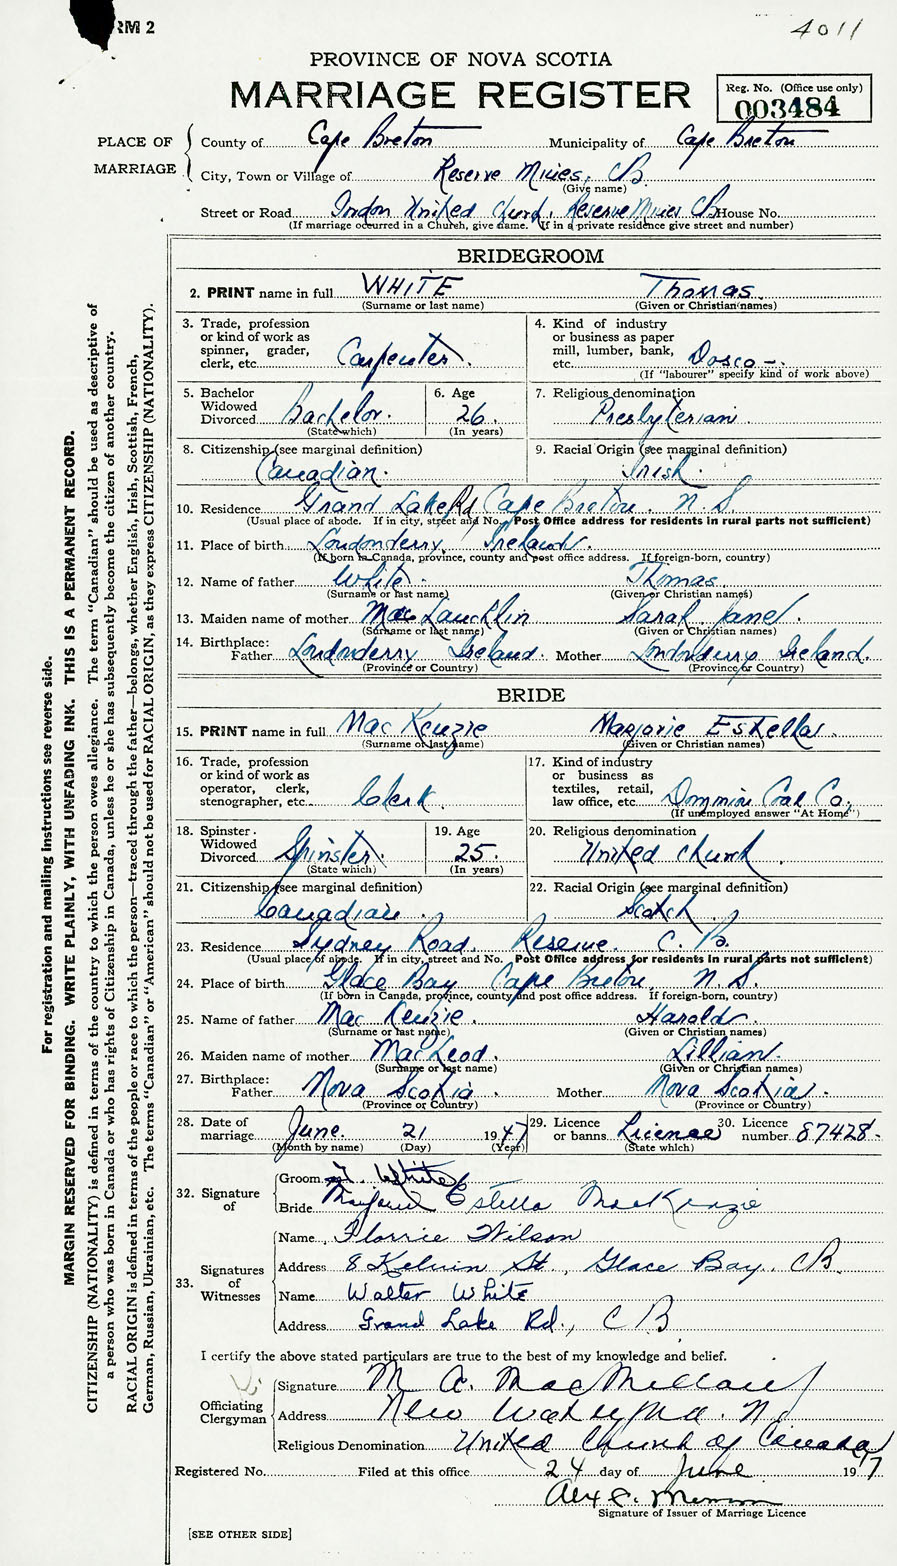 RM 2
4011
PROVINCE OF NOVA SCOTIA
MARRIAGE REGISTER
Reg. No. (Office use only)
003484
PLACE OF MARRIAGE
County of Cape Breton Municipality of Cape Breton
City, Town or Village of Reserve Mines, CB
(Give name)
Street or Road United Church, Reserve Mines CB House No.
(If marriage occurred in a Church, give name. If in a private residence give street and number)
BRIDEGROOM
2. PRINT name in full WHITE Thomas.
(Surname or last name) (Given or Christian names)
3. Trade, profession or kind of work as spinner, grader, clerk, etc. Carpenter.
4. Kind of industry or business as paper mill, lumber, bank, etc. Dosco -.
(If "labourer" specify kind of work above)
5. Bachelor Widowed Divorced Bachelor.
(State which)
6. Age 26.
(In years)
7. Religious denomination Presbyterian
8. Citizenship (see marginal definition) Canadian.
9. Racial Origin (see marginal definition) Irish.
10. Residence Grand Lake Rd Cape Breton. N. S.
(Usual place of abode. If in city, street and No. Post Office address for residents in rural parts not sufficient)
11. Place of birth Londonderry, Ireland.
(If born in Canada, province, county and post office address. If foreign-born, country)
12. Name of father White. Thomas.
(Surname or last name) (Given or Christian names)
13. Maiden name of mother Mac Lauchlin Sarah Jane.
(Surname or last name) (Given or Christian names)
14. Birthplace: Father Londonderry Ireland. Mother Londonderry Ireland.
(Province or Country) (Province or Country)
BRIDE
15. PRINT name in full Mac Kenzie Marjorie Estella.
(Surname or last name) (Given or Christian names)
16. Trade, profession or kind of work as operator, clerk, stenographer, etc. Clerk.
17. Kind of industry or business as textiles, retail, law office, etc. Dominion Coal Co.
(If unemployed answer "At Home")
18. Spinster Widowed Divorced Spinster.
(State which)
19. Age 25.
(In years)
20. Religious denomination United Church.
21. Citizenship (see marginal definition) Canadian.
22. Racial Origin (see marginal definition) Scotch.
23. Residence Sydney Road. Reserve. C. B.
(Usual place of abode. If in city, street and No. Post Office address for residents in rural parts not sufficient)
24. Place of birth Glace Bay Cape Breton. N. S.
(If born in Canada, province, county and post office address. If foreign-born, country)
25. Name of father Mac Kenzie. Harold.
(Surname or last name) (Given or Christian names)
26. Maiden name of mother MacLeod. Lillian.
(Surname or last name) (Given or Christian names)
27. Birthplace: Father Nova Scotia. Mother Nova Scotia.
(Province or Country) (Province or Country)
28. Date of marriage June. 21 1947
(Month by name) (Day) (Year)
29. Licence or banns Licence
(State which)
30. Licence number 87428.
32. Signature of
Groom T. White
Bride Marjorie Estella MacKenzie
33. Signatures of Witnesses
Name Florrie Wilson
Address 8 Kelvin St., Glace Bay, CB.
Name Walter White
Address Grand Lake Rd., C B
I certify the above stated particulars are true to the best of my knowledge and belief.
Officiating Clergyman
Signature M. A. MacMillan
Address New Waterford. N.
Religious Denomination United Church of Canada
Registered No. Filed at this office 24 day of June 1947
Signature of Issuer of Marriage Licence
[SEE OTHER SIDE]
For registration and mailing instructions see reverse side.
MARGIN RESERVED FOR BINDING. WRITE PLAINLY, WITH UNFADING INK. THIS IS A PERMANENT RECORD.
CITIZENSHIP (NATIONALITY) is defined in terms of the country to which the person owes allegiance. The term "Canadian" should be used as descriptive of
a person who was born in Canada or who has rights of Citizenship in Canada, unless he or she has subsequently become the citizen of another country.
RACIAL ORIGIN is defined in terms of the people or race to which the person—traced through the father—belongs, whether English, Irish, Scottish, French,
German, Russian, Ukrainian, etc. The terms "Canadian" or "American" should not be used for RACIAL ORIGIN, as they express CITIZENSHIP (NATIONALITY).